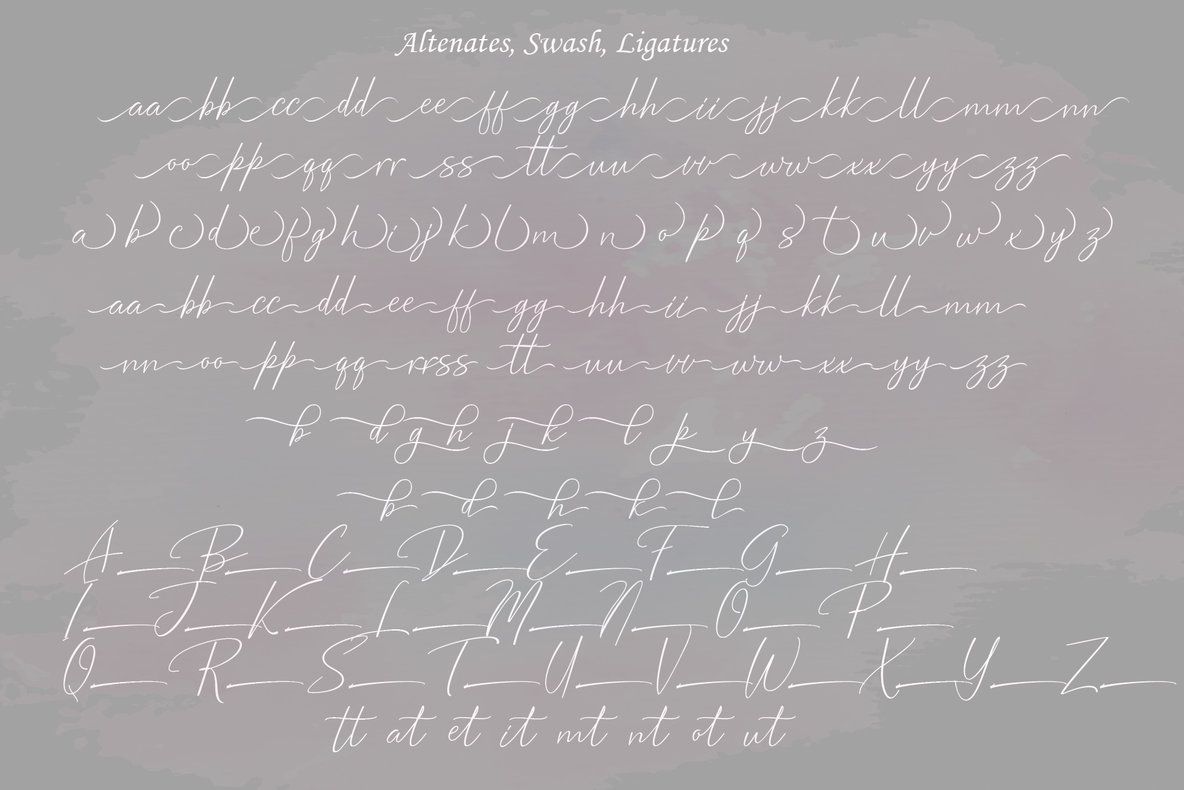 Altenates, Swash, Ligatures
aa bb cc dd ee ff gg hh ii jj kk ll mm nn
oo pp qq rr ss tt uu vv ww xx yy zz
a b c d e f g h i j k l m n o p q s t u v w x y z
aa bb cc dd ee ff gg hh ii jj kk ll mm
nn oo pp qq rrss tt uu vv ww xx yy zz
b d g h j k l p y z
b d h k l
A B C D E F G H
I J K L M N O P
Q R S T U V W X Y Z
tt at et it mt nt ot ut